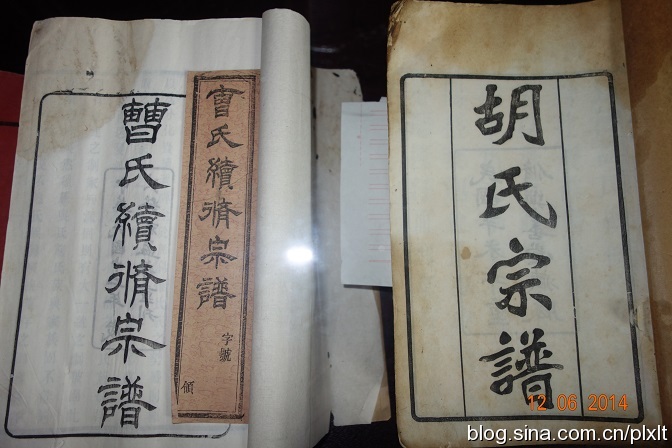 曹氏續脩宗譜
曹氏續脩宗譜
字號
領
胡氏宗譜
12 06 2014
blog.sina.com.cn/plxlt